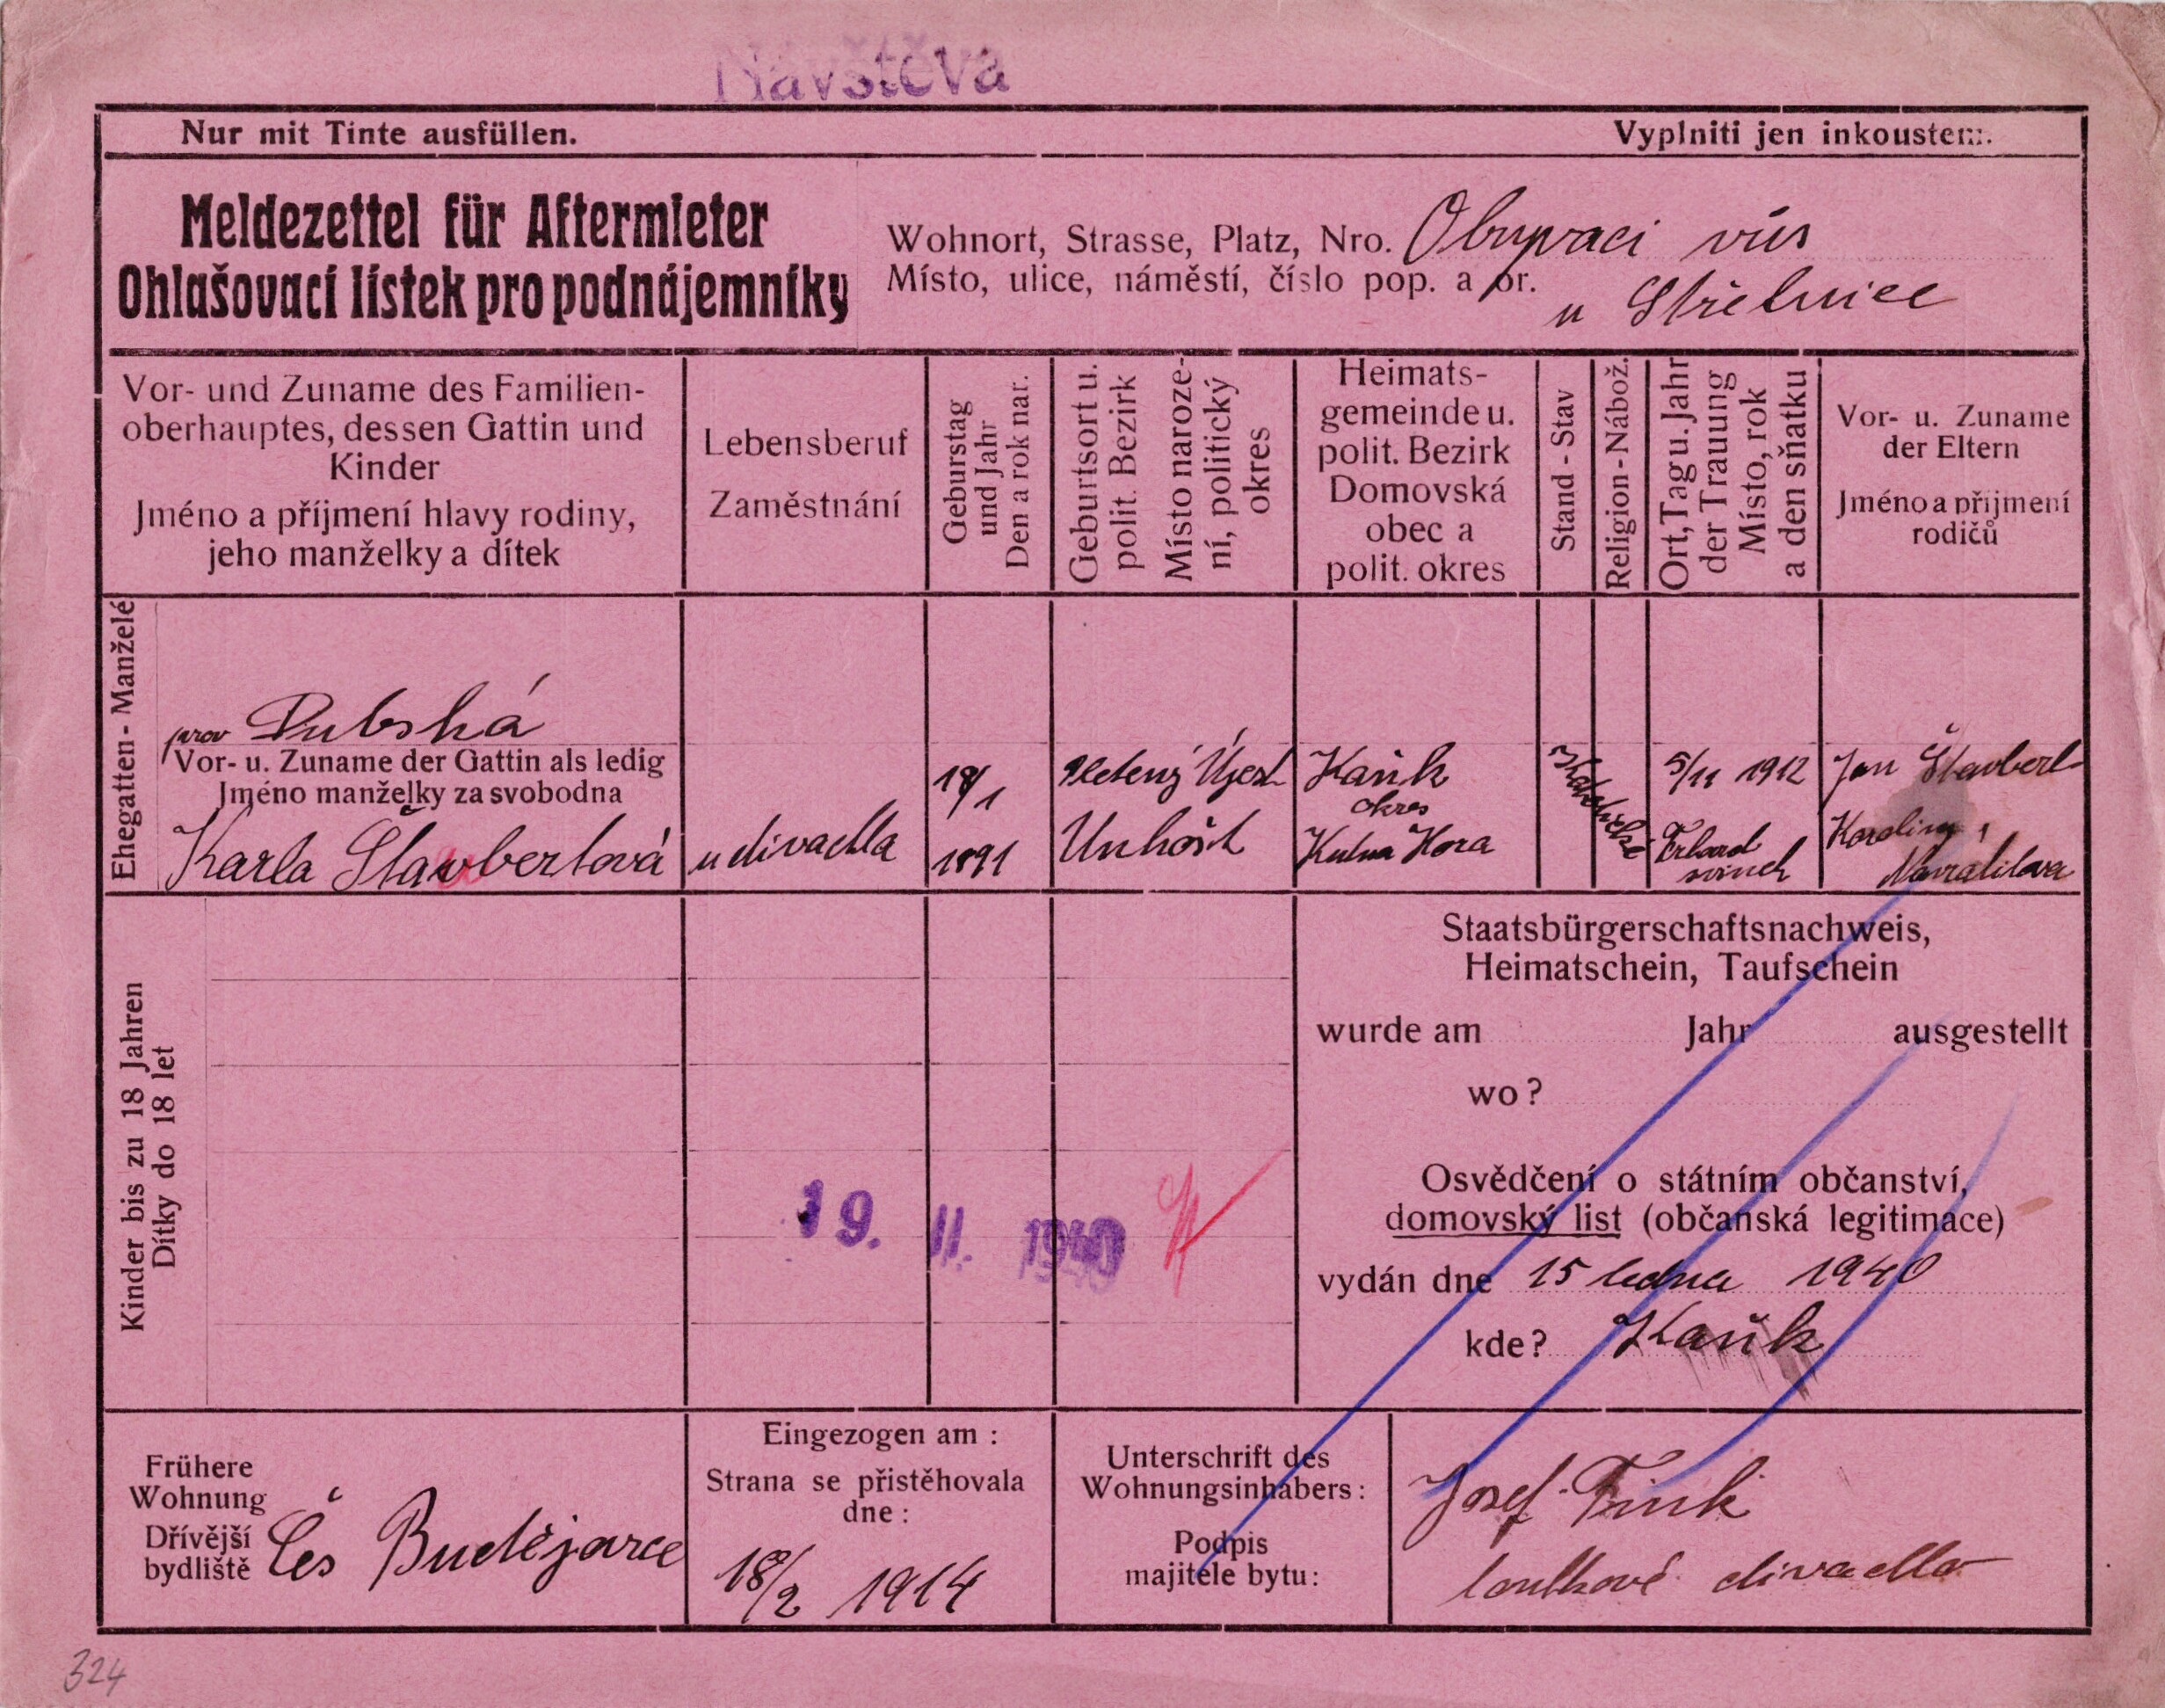 Návštěva
Nur mit Tinte ausfüllen.
Vyplniti jen inkoustem.
Meldezettel für Aftermieter
Ohlašovací lístek pro podnájemníky
Wohnort, Strasse, Platz, Nro.
Místo, ulice, náměstí, číslo pop. a or.
Obyvaci vůs
u Střelnice
Vor- und Zuname des Familien-
oberhauptes, dessen Gattin und
Kinder
Jméno a příjmení hlavy rodiny,
jeho manželky a dítek
Lebensberuf
Zaměstnání
Geburstag
und Jahr
Den a rok nar.
Geburtsort u.
polit. Bezirk
Místo naroze-
ní, politický
okres
Heimats-
gemeinde u.
polit. Bezirk
Domovská
obec a
polit. okres
Stand - Stav
Religion - Nábož.
Ort, Tag u. Jahr
der Trauung
Místo, rok
a den sňatku
Vor- u. Zuname
der Eltern
Jméno a příjmení
rodičů
Ehegatten - Manželé
prov Dubská
Vor- u. Zuname der Gattin als ledig
Jméno manželky za svobodna
Karla Štaubertová
u divadla
18/1
1891
Újezd
Unhošt
Kaňk
okres
Kutna Hora
Katolické
5/11 1912
Jan Štaubert
Karolina
Navrátilova
Kinder bis zu 18 Jahren
Dítky do 18 let
19. II. 1940
Staatsbürgerschaftsnachweis,
Heimatschein, Taufschein
wurde am Jahr ausgestellt
wo?
Osvědčení o státním občanství,
domovský list (občanská legitimace)
vydán dne 15 ledna 1940
kde? Kaňk
Frühere
Wohnung
Dřívější
bydliště
Čes Budějovce
Eingezogen am :
Strana se přistěhovala
dne :
18/2 1914
Unterschrift des
Wohnungsinhabers :
Podpis
majitele bytu :
Josef Fink
loutkové divadlo
324